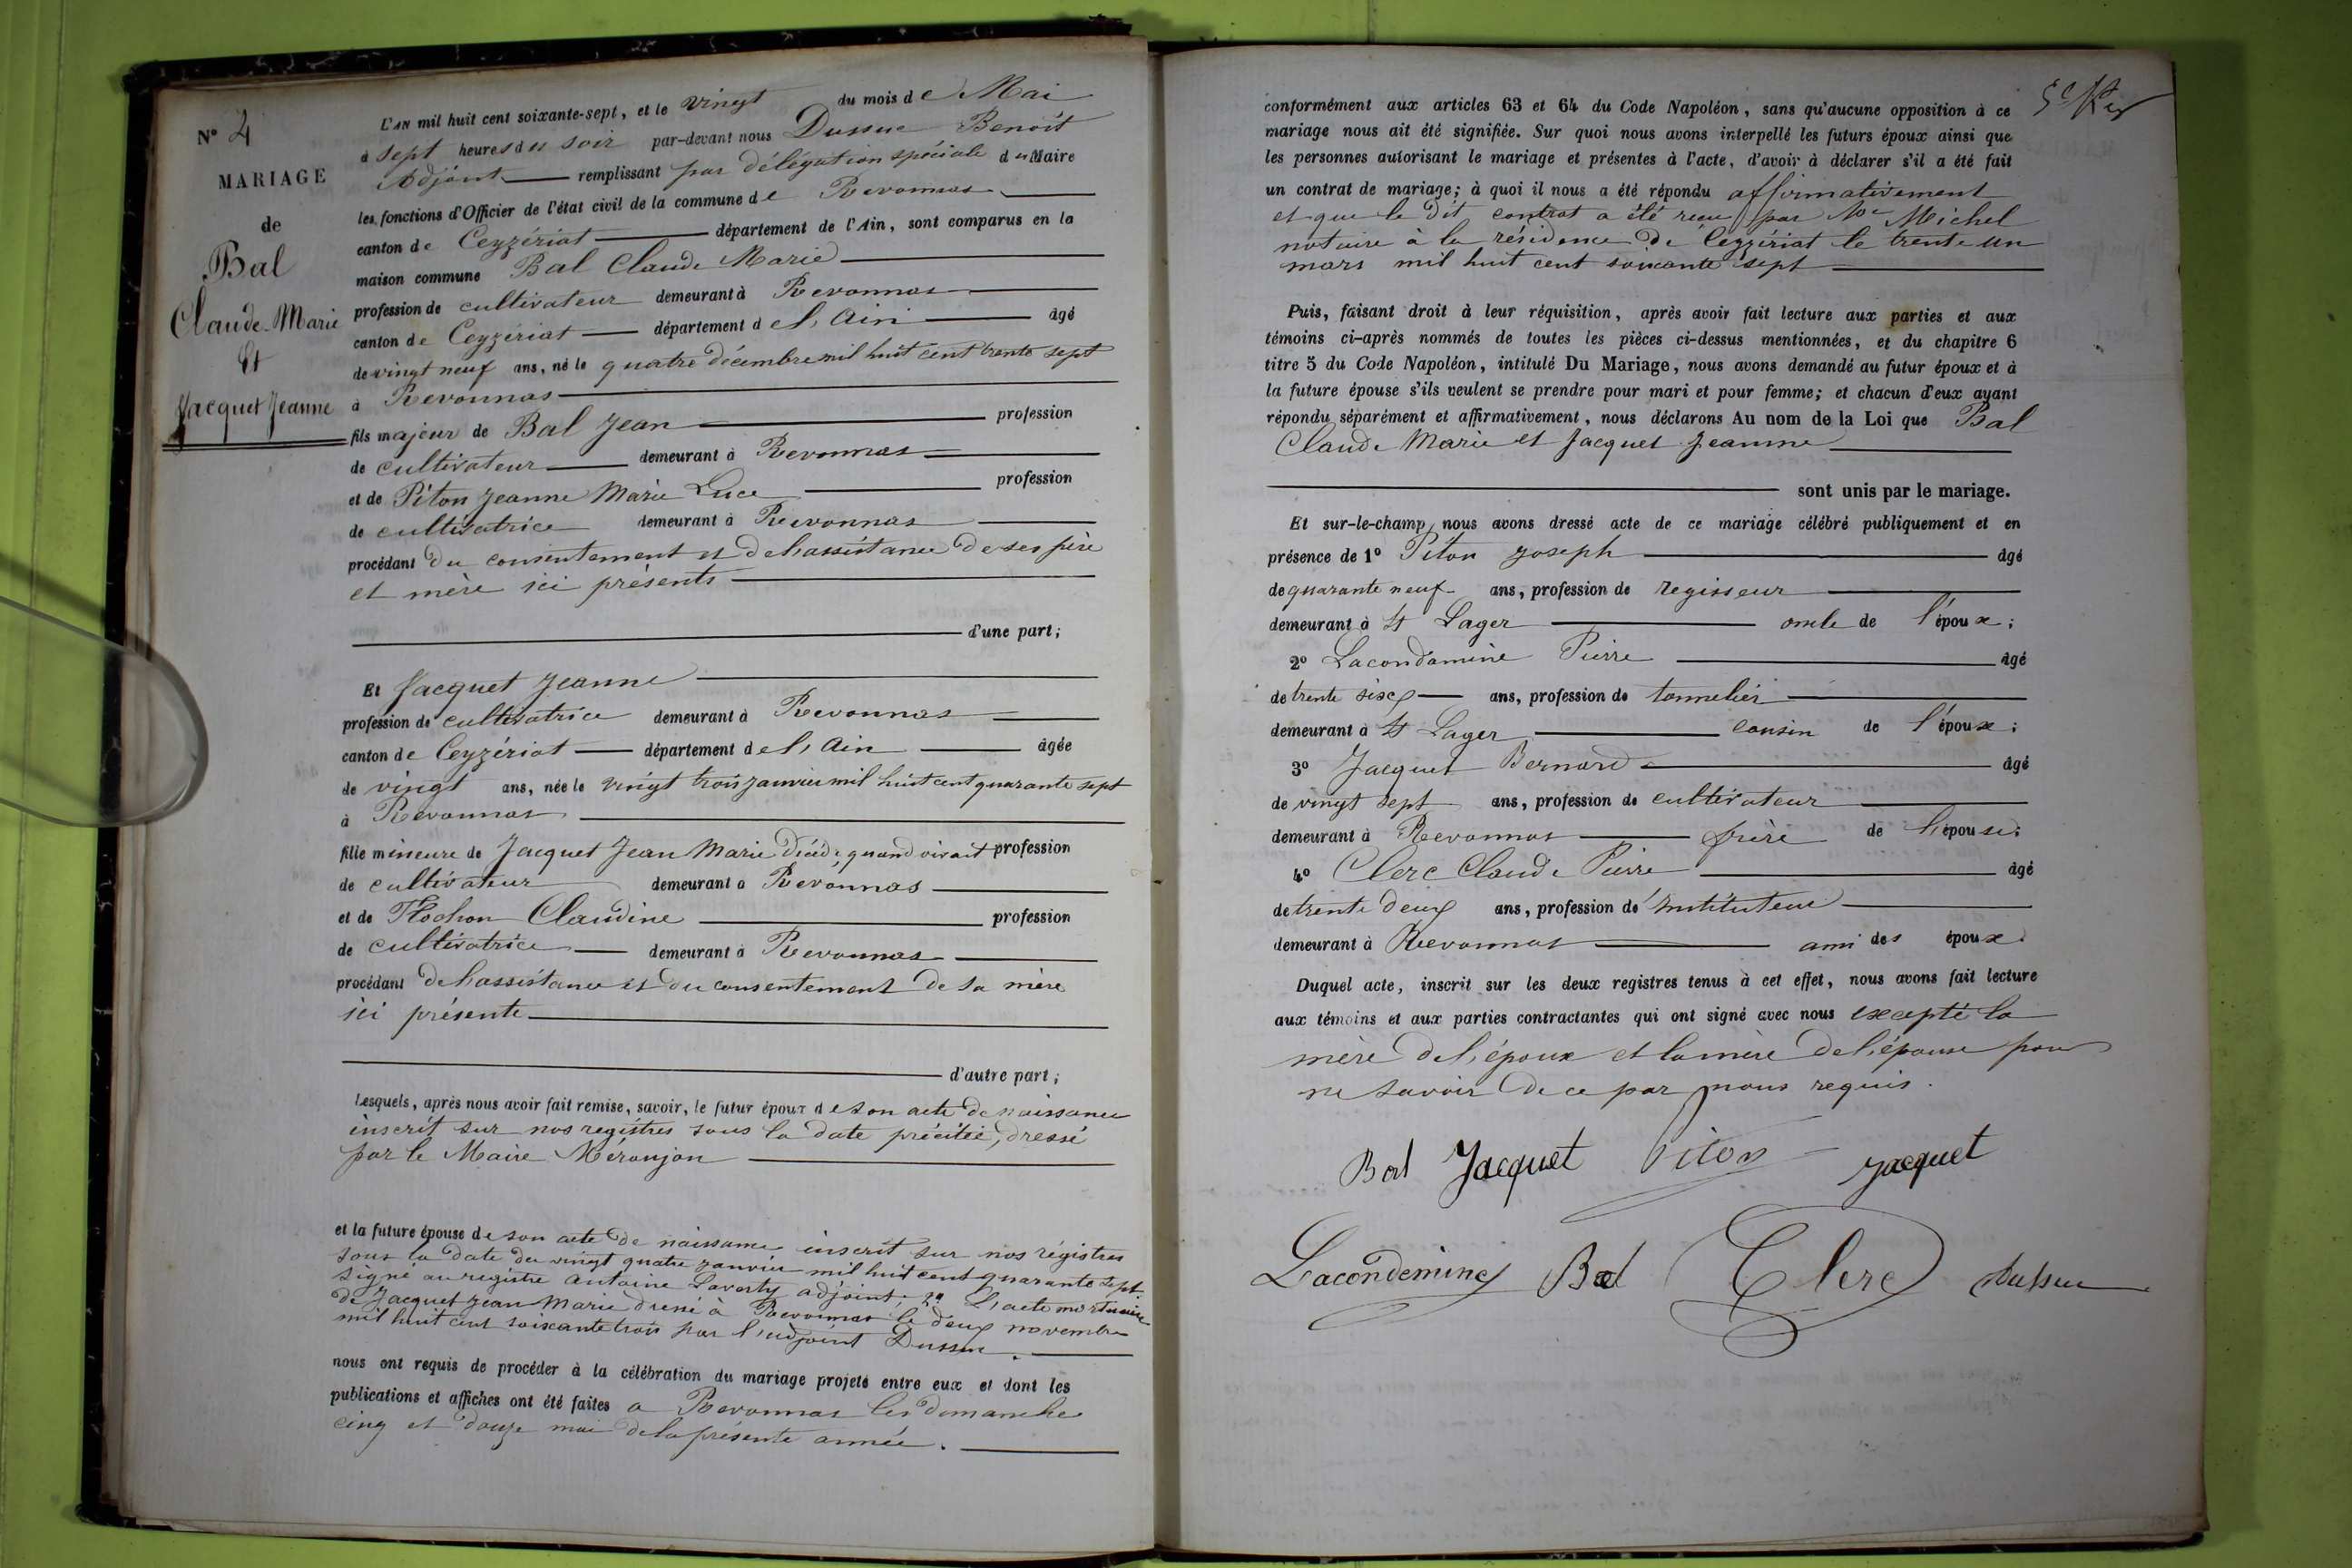 N° 4
MARIAGE
de
Bal
Claude-Marie
Et
Jacquet Jeanne
L'AN mil huit cent soixante-sept, et le vingt du mois de Mai
à sept heures du soir par-devant nous Dussue Benoît
Adjoint remplissant par délégation spéciale du Maire
les fonctions d'Officier de l'état civil de la commune de Revonnas
canton de Ceyzériat département de l'Ain, sont comparus en la
maison commune Bal Claude Marie
profession de cultivateur demeurant à Revonnas
canton de Ceyzériat département de l'Ain âgé
de vingt neuf ans, né le quatre décembre mil huit cent trente sept
à Revonnas
fils majeur de Bal Jean profession
de cultivateur demeurant à Revonnas
et de Piton Jeanne Marie Luce profession
de cultivatrice demeurant à Revonnas
procédant du consentement et de l'assistance de ses père
et mère ici présents
d'une part;
Et Jacquet Jeanne
profession de cultivatrice demeurant à Revonnas
canton de Ceyzériat département de l'Ain âgée
de vingt ans, née le vingt trois janvier mil huit cent quarante sept
à Revonnas
fille mineure de Jacquet Jean Marie décédé, quand vivait profession
de cultivateur demeurant à Revonnas
et de Flochon Claudine profession
de cultivatrice demeurant à Revonnas
procédant de l'assistance et du consentement de sa mère
ici présente
d'autre part;
Lesquels, après nous avoir fait remise, savoir, le futur époux de son acte de naissance
inscrit sur nos registres sous la date précitée, dressé
par le Maire Méronjon
et la future épouse de son acte de naissance inscrit sur nos régistres
sous la date du vingt quatre janvier mil huit cent quarante sept.
signé au registre Antoine adjoint; 2° L'acte mortuaire
de Jacquet Jean Marie dressé à Revonnas le deux novembre
mil huit cent soixante trois par l'adjoint Dussue.
nous ont requis de procéder à la célébration du mariage projeté entre eux et dont les
publications et affiches ont été faites à Revonnas les dimanches
cinq et douze mai de la présente année.
conformément aux articles 63 et 64 du Code Napoléon, sans qu'aucune opposition à ce
mariage nous ait été signifiée. Sur quoi nous avons interpellé les futurs époux ainsi que
les personnes autorisant le mariage et présentes à l'acte, d'avoir à déclarer s'il a été fait
un contrat de mariage; à quoi il nous a été répondu affirmativement
et que le dit contrat a été reçu par Me Michel
notaire à la résidence de Ceyzériat le trente un
mars mil huit cent soixante sept
Puis, faisant droit à leur réquisition, après avoir fait lecture aux parties et aux
témoins ci-après nommés de toutes les pièces ci-dessus mentionnées, et du chapitre 6
titre 5 du Code Napoléon, intitulé Du Mariage, nous avons demandé au futur époux et à
la future épouse s'ils veulent se prendre pour mari et pour femme; et chacun d'eux ayant
répondu séparément et affirmativement, nous déclarons Au nom de la Loi que Bal
Claude Marie et Jacquet Jeanne
sont unis par le mariage.
Et sur-le-champ, nous avons dressé acte de ce mariage célébré publiquement et en
présence de 1° Piton Joseph âgé
de quarante neuf ans, profession de regisseur
demeurant à St Lager oncle de l'époux;
2° Lacondamine Pierre âgé
de trente six ans, profession de tonnelier
demeurant à St Lager cousin de l'époux;
3° Jacquet Bernard âgé
de vingt sept ans, profession de cultivateur
demeurant à Revonnas frère de l'épouse;
4° Clerc Claude Pierre âgé
de trente deux ans, profession d'instituteur
demeurant à Revonnas ami des époux.
Duquel acte, inscrit sur les deux registres tenus à cet effet, nous avons fait lecture
aux témoins et aux parties contractantes qui ont signé avec nous excepté la
mère de l'époux et la mère de l'épouse pour
ne savoir de ce par nous requis.
Bal Jacquet Piton Jacquet
Lacondemine Bal Clerc Dussue